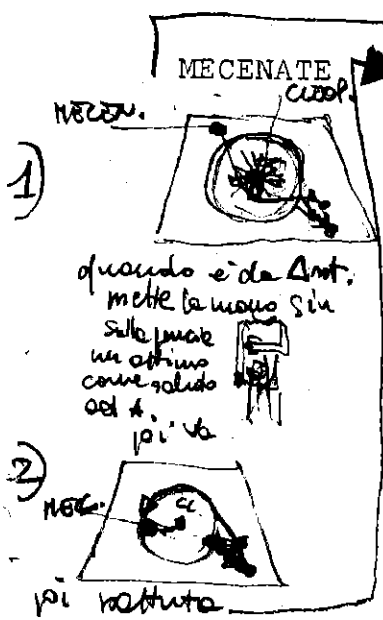 MECENATE
CLEOP.
MECEN.
1)
quando è da Ant.
mette la mano sin
sulla pancia
un attimo
come saluto
ad A.
poi va
2)
MEC.
CL
poi battuta